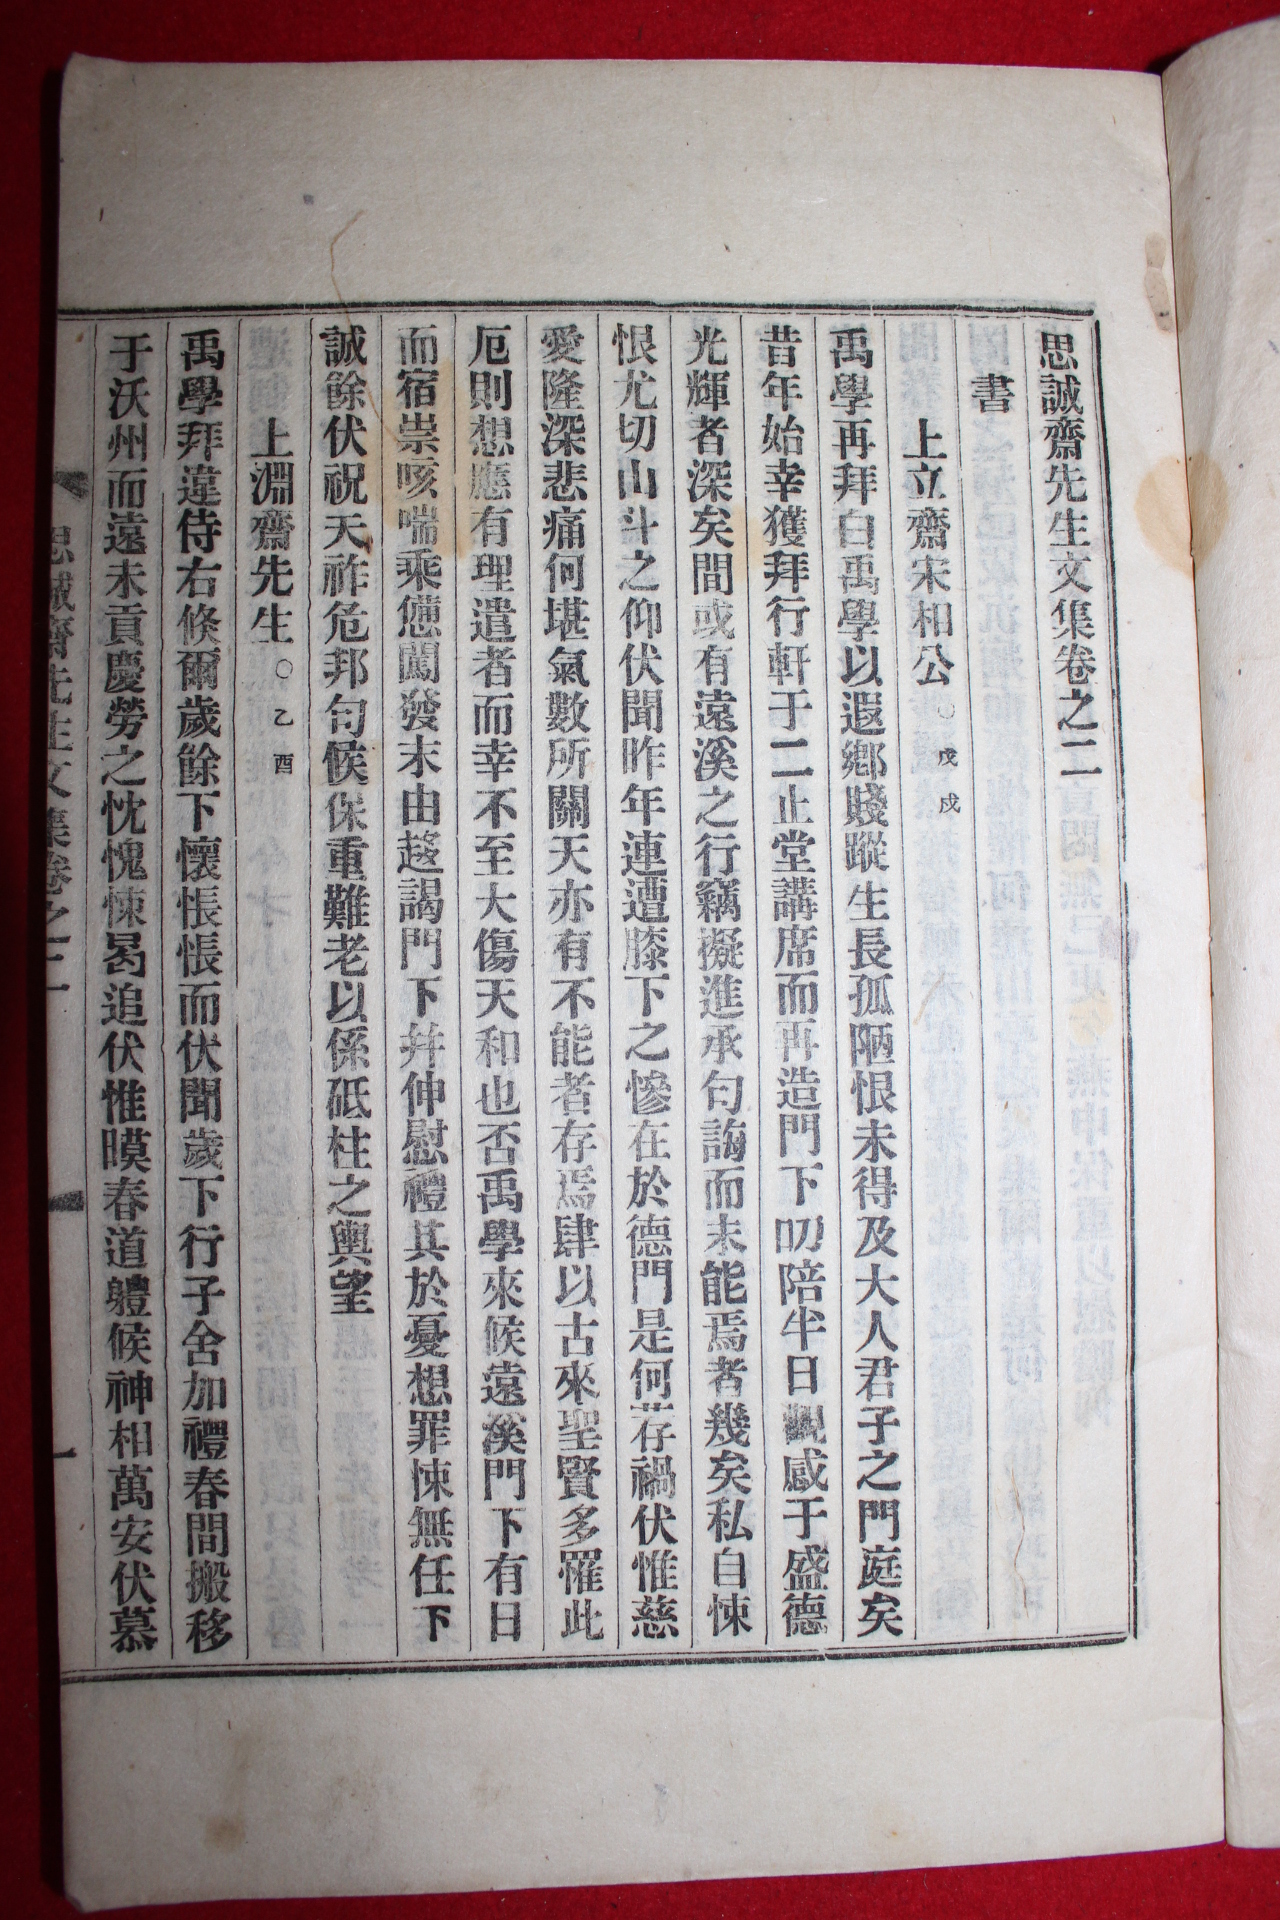 思誠齋先生文集卷之二
書
上立齋宋相公○戊戌
禹學再拜白禹學以遐鄉賤蹤生長孤陋恨未得及大人君子之門庭矣
昔年始幸獲拜行軒于二止堂講席而再造門下叨陪半日觀感于盛德
光輝者深矣間或有遠溪之行竊擬進承句誨而未能焉者幾矣私自悚
恨尤切山斗之仰伏聞昨年連遭膝下之慘在於德門是何荐禍伏惟慈
愛隆深悲痛何堪氣數所關天亦有不能者存焉肆以古來聖賢多罹此
厄則想應有理遣者而幸不至大傷天和也否禹學來候遠溪門下有日
而宿祟咳喘乘憊闖發末由趨謁門下幷伸慰禮其於憂想罪悚無任下
誠餘伏祝天祚危邦匀候保重難老以係砥柱之輿望
上淵齋先生○乙酉
禹學拜違侍右倐爾歲餘下懷悵悵而伏聞歲下行子舍加禮春間搬移
于沃州而遠未貢慶勞之忱愧悚曷追伏惟暯春道軆候神相萬安伏慕
思誠齋先生文集卷之二 一